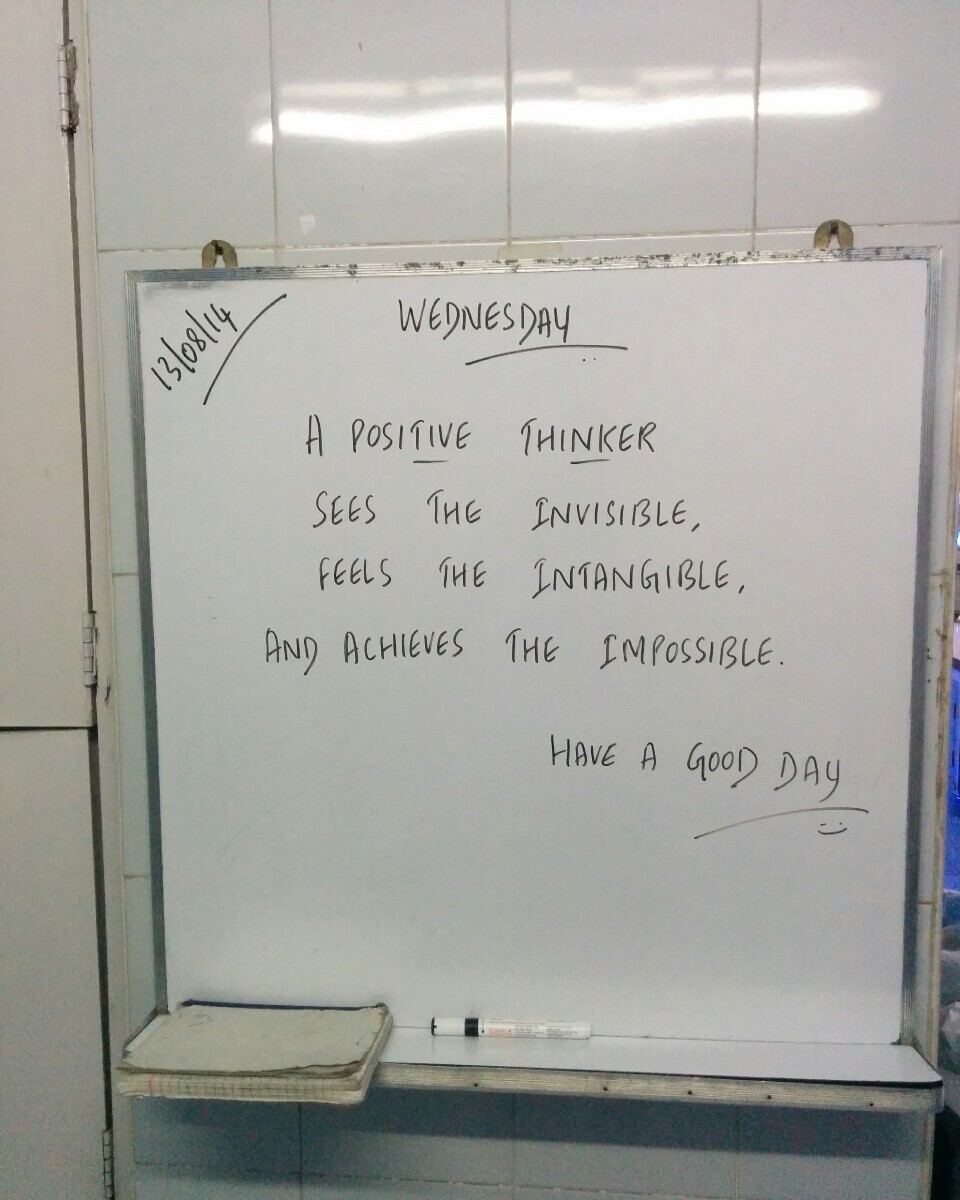 13/08/14
WEDNESDAY
A POSITIVE THINKER
SEES THE INVISIBLE,
FEELS THE INTANGIBLE,
AND ACHIEVES THE IMPOSSIBLE.
HAVE A GOOD DAY